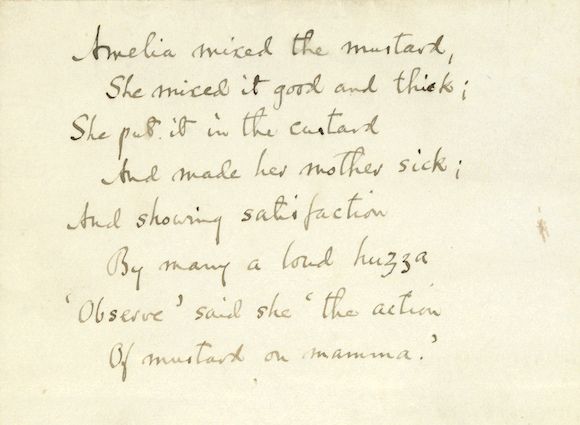 Amelia mixed the mustard,
She mixed it good and thick;
She put it in the custard
And made her mother sick;
And showing satisfaction
By many a loud huzza
'Observe' said she 'the action
Of mustard on mamma.'